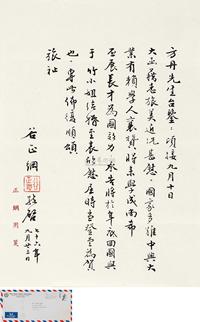 方丹先生台鑒：頃接九月十日
大函藉悉旅美近況甚慰。國家多難中興大
業有賴學人襄贊時來學成而希
展長才為國效力承告將於年底回國與
于竹小姐結婚至表欣慰屆時當登堂為賀
也。專此佈復順頌
旅祉
谷正綱
敬啓
七十六年
九月廿三日
正綱用箋